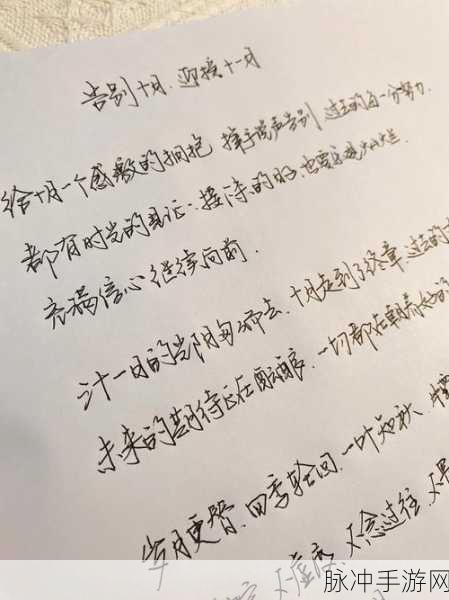 告别十月.迎接十一月
给十月一个感激的拥抱 挥手说声告别 过去的每一分努力.
都有时光的见证;接 的日子 也要
充满信心继续向前.
一月的光阴匆匆而去.十月走到了终章.过去的
未来的期待正在酝酿.一切都在朝着好的
岁月更替.四季轮回.一叶知秋.
不念过往.不
脉冲手游网